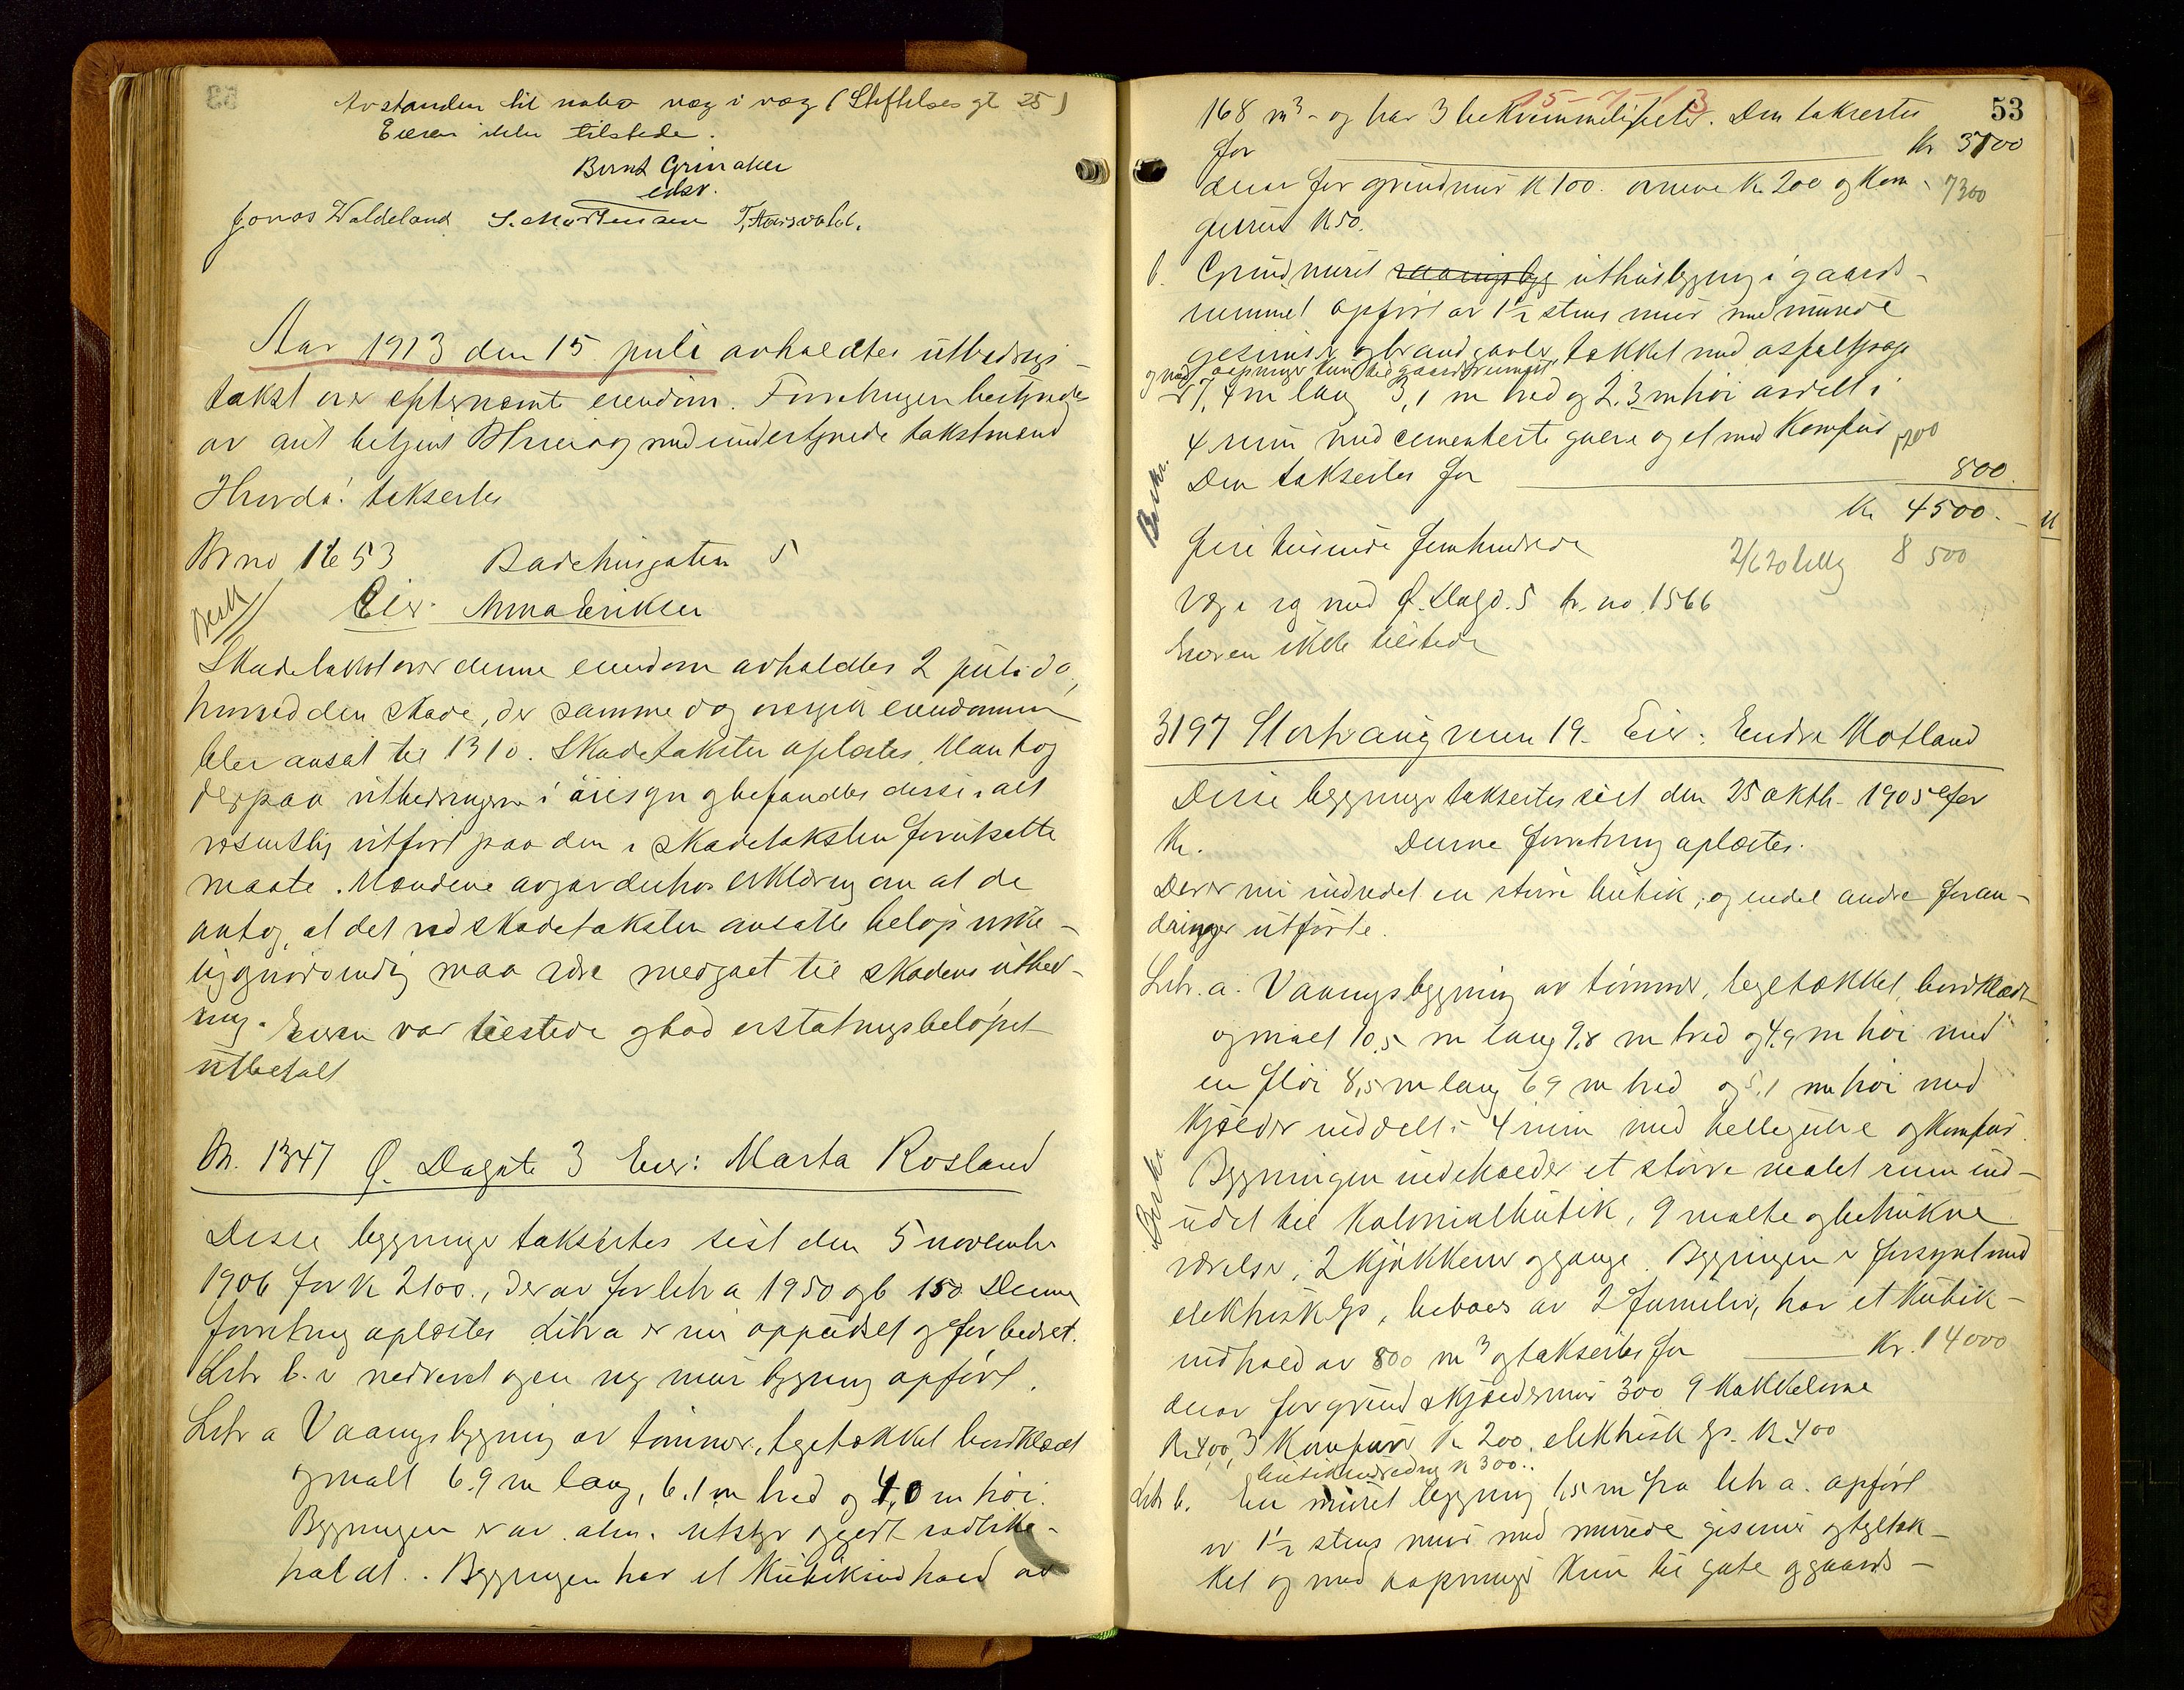 Avstanden til nabo væg i væg (Stiftelsesgt 25)
Eieren ikke tilstede.
Bernt Grinaker
eksv.
Jonas Waldeland S. Mortensen
Aar 1913 den 15 juli avholdtes utbedrings
takst over efternævnte eiendom. Forretningen bestyredes
av aut betjent med undertegnede takstmænd
Hvorda! takserte
Br no 1653 Badehusgaten 5
Besk
Eier Anna Eriksen
Skadetakst over denne eiendom avholdtes 2 juli d.a.,
hvorved den skade, der samme dag overgik eiendommen
blev ansat til 1310. Skadetaksten oplæstes. Man tog
derpaa utbedringerne i øiesyn og befandtes disse i alt
væsentlig utført paa den i skadetaksten forutsatte
maate. Mændene avgav derhos erklæring om at de
antog, at det ved skadetaksten ansatte beløp virke-
lig og nødvendig maa være medgaat til skadens utbed-
ring. Eieren var tilstede og bad erstatningsbeløpet
utbetalt
Br. 1347 Ø. Dagsgt. 3 Eier: Marta Rosland
Disse bygninger taksertes sist den 5 november
1906 for kr 2100., derav for litr a 1950 og b 150. Denne
forretning oplæstes Litr a er nu oppudset og forbedret.
Litr b. er nedrevet og en ny mur bygning opført.
Litr a Vaaningsbygning av tømmer, tegltækket bordklædt
og malt 6.9 m lang, 6.1 m bred og 4,0 m høi.
Bygningen er av alm. utstyr og godt vedlike-
holdt. Bygningen har et kubikindhold av
53
15-7-13
168 m³ - og har 3 bekvemmeligheter. Den takseres
for kr 3700
derav for grundmur k 100. ovnene kr 200 og kom- 7300
gerust k 50.
b. Grundmuret vaaningsbyg uthusbygning i gaards-
rummet opført av 1½ stens mur med murede
gesimser og brandgavler, tækket med asfaltpap
og med aapninger kun til gaardsrummet
7,4 m lang 3,1 m bred og 2.3 m høi avdelt i
4 rum med cementerte gulve og et med komfur 1200
Beskr.
Den takseres for 800
Kr 4500.-
fire tusinde femhundrede 8 500
Væg i væg med Ø. Dagsgt. 5 br. no. 1566
Eieren ikke tilstede
3197 Storhaugveien 19. Eier: Endre Motland
Disse bygninger taksertes sist den 25 oktb. 1905 for
Kr. Denne forretning oplæstes.
Der er nu indredet en større butik, og endel andre foran-
dringer utførte.
Litr. a. Vaaningsbygning av tømmer, tegltækket, bordklædt
og malt 10,5 m lang 9,8 m bred og 4,9 m høi med
en fløi 8,5 m lang 6 9 m bred og 5,1 m høi med
kjælder inddelt i 4 rum med hellegulve og komfur.
Beskr.
Bygningen indeholder et større malet rum ind-
redet til kolonialbutik, 9 malte og betrukne
værelser, 2 kjøkkener og gange. Bygningen er forsynt med
elektrisk lys, beboes av 2 familier, har et kubik-
indhold av 800 m³ og takseres for Kr. 14000
derav for grund & kjældermur 300 9 kakkelovne
Kr. 400, 3 komfurer kr 200, elektrisk lys. kr. 400
butikindredning k 300.
Litr b. En muret bygning 1,5 m fra litr a. opført
av 1½ stens mur med murede gesimser og tegltæk-
ket og med aapninger kun til gate og gaards-